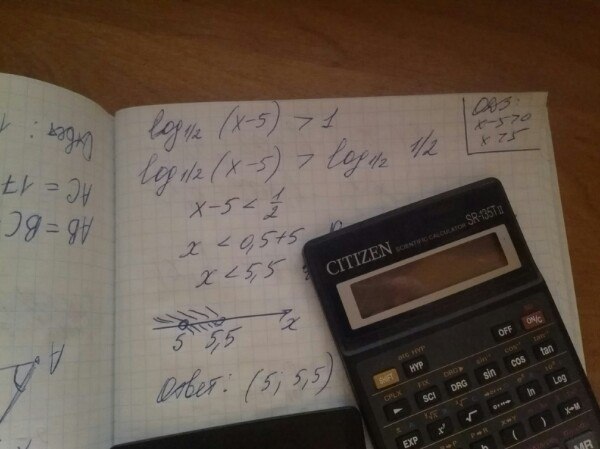 log1/2 (x-5) > 1
ОДЗ:
x-5>0
x>5
log1/2 (x-5) > log1/2 1/2
x-5 < 1/2
x < 0,5+5
x < 5,5
5 5,5 x
Ответ: (5; 5,5)
Ответ: 1
AC = 17
AB = BC
A
CITIZEN
SCIENTIFIC CALCULATOR SR-135T II
OFF
ON/C
arc HYP
SHIFT
HYP
FIX
DRG▸
sin⁻¹
cos⁻¹
tan⁻¹
SCI
DRG
sin
cos
tan
CPLX
►
ln
Log
EXP
x²
√
(
)
X→M
MR